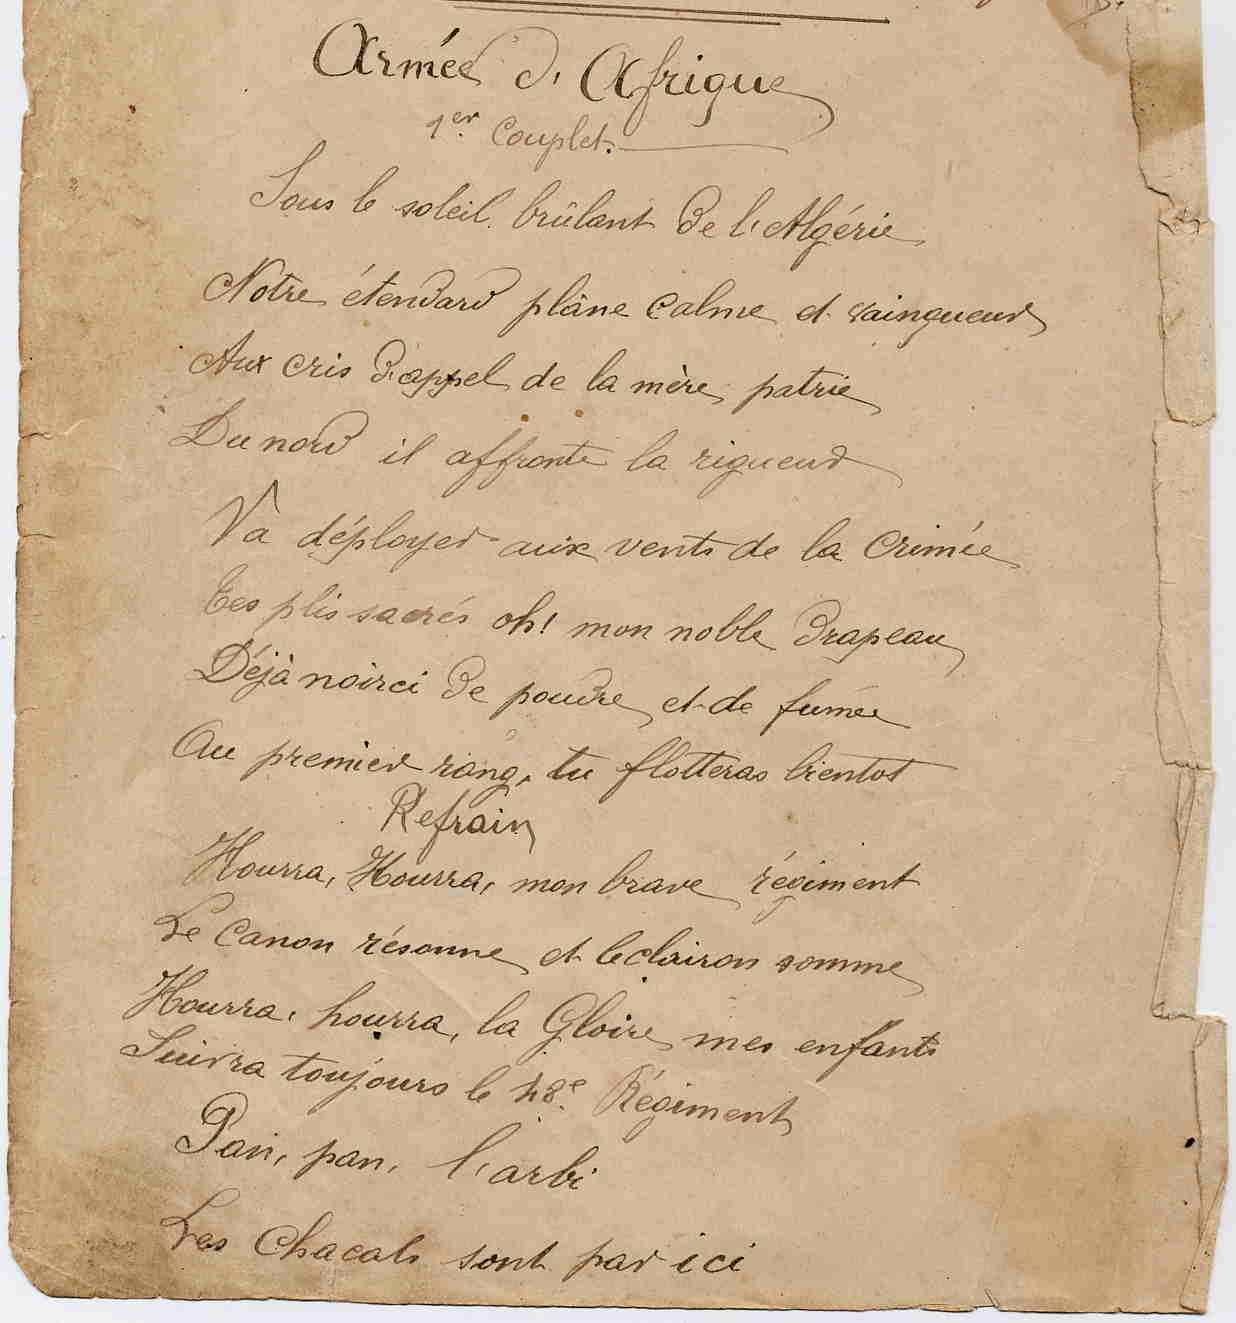 Armée d'Afrique
1er. Couplet.
Sous le soleil brûlant de l'Algérie
Notre étendard plâne calme et vainqueur
Aux cris d'appel de la mère patrie
Du nord il affronte la rigueur
Va déployer aux vents de la Crimée
Tes plis sacrés oh! mon noble drapeau
Déjà noirci de poudre et de fumée
Au premier rang, tu flotteras bientot
Refrain
Hourra, Hourra, mon brave régiment
Le Canon résonne et le clairon somme
Hourra, hourra, la Gloire mes enfants
Suivra toujours le 48e. Régiment
Pan, pan, l'arbi
Les Chacals sont par ici